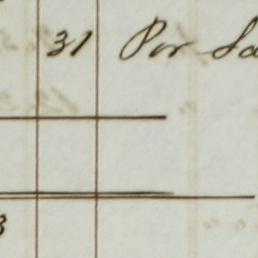 31 Per Sa